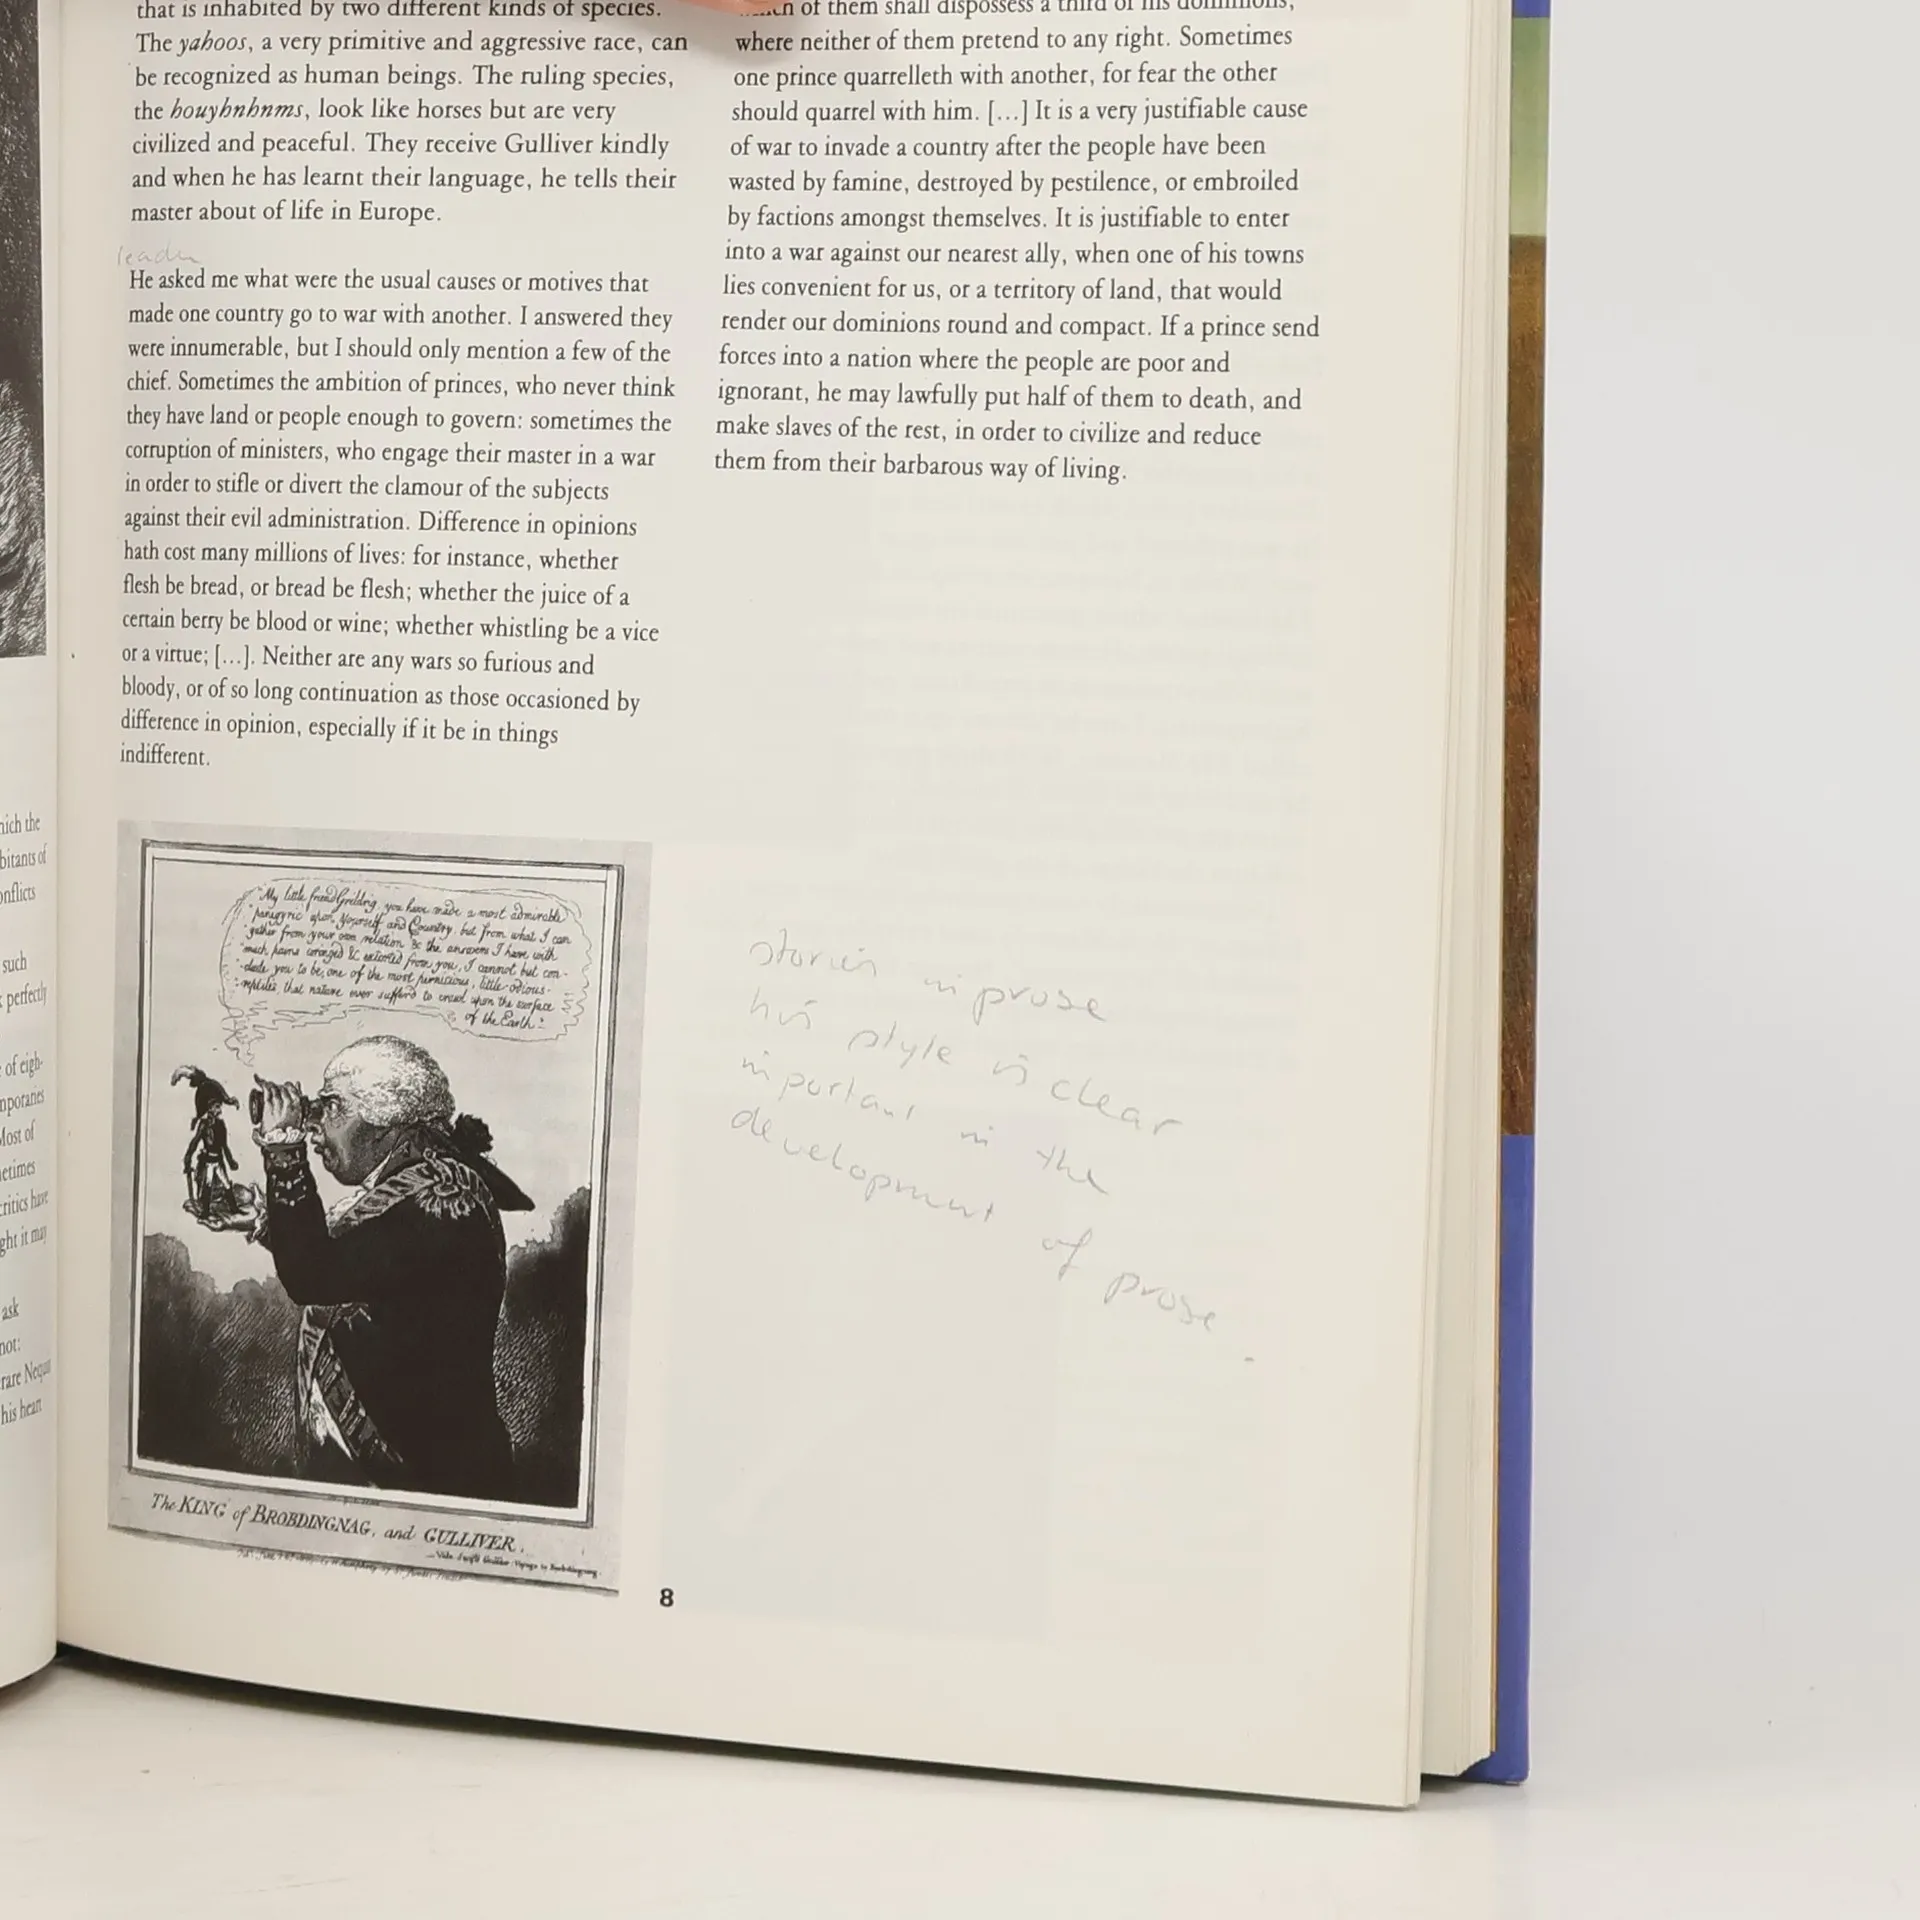 that is inhabited by two different kinds of species.
The yahoos, a very primitive and aggressive race, can
be recognized as human beings. The ruling species,
the houyhnhnms, look like horses but are very
civilized and peaceful. They receive Gulliver kindly
and when he has learnt their language, he tells their
master about of life in Europe.
leader
He asked me what were the usual causes or motives that
made one country go to war with another. I answered they
were innumerable, but I should only mention a few of the
chief. Sometimes the ambition of princes, who never think
they have land or people enough to govern: sometimes the
corruption of ministers, who engage their master in a war
in order to stifle or divert the clamour of the subjects
against their evil administration. Difference in opinions
hath cost many millions of lives: for instance, whether
flesh be bread, or bread be flesh; whether the juice of a
certain berry be blood or wine; whether whistling be a vice
or a virtue; [...]. Neither are any wars so furious and
bloody, or of so long continuation as those occasioned by
difference in opinion, especially if it be in things
indifferent.
of them shall dispossess a third of his dominions,
where neither of them pretend to any right. Sometimes
one prince quarrelleth with another, for fear the other
should quarrel with him. [...] It is a very justifiable cause
of war to invade a country after the people have been
wasted by famine, destroyed by pestilence, or embroiled
by factions amongst themselves. It is justifiable to enter
into a war against our nearest ally, when one of his towns
lies convenient for us, or a territory of land, that would
render our dominions round and compact. If a prince send
forces into a nation where the people are poor and
ignorant, he may lawfully put half of them to death, and
make slaves of the rest, in order to civilize and reduce
them from their barbarous way of living.
"My little friend Grildrig, you have made a most admirable
"panegyric upon Yourself and Country, but from what I can
"gather from your own relation & the answers I have with
"much pains wringed & extorted from you, I cannot but con-
-clude you to be, one of the most pernicious, little-odious-
-reptiles, that nature ever suffer'd to crawl upon the surface
of the Earth:"
The KING of BROBDINGNAG, and GULLIVER.
stories in prose
his style is clear
important in the
development of prose
8
hich the
bitants of
onflicts
such
perfectly
of eigh-
mporaries
Most of
etimes
critics have
ght it may
ask
not:
rare
his heart